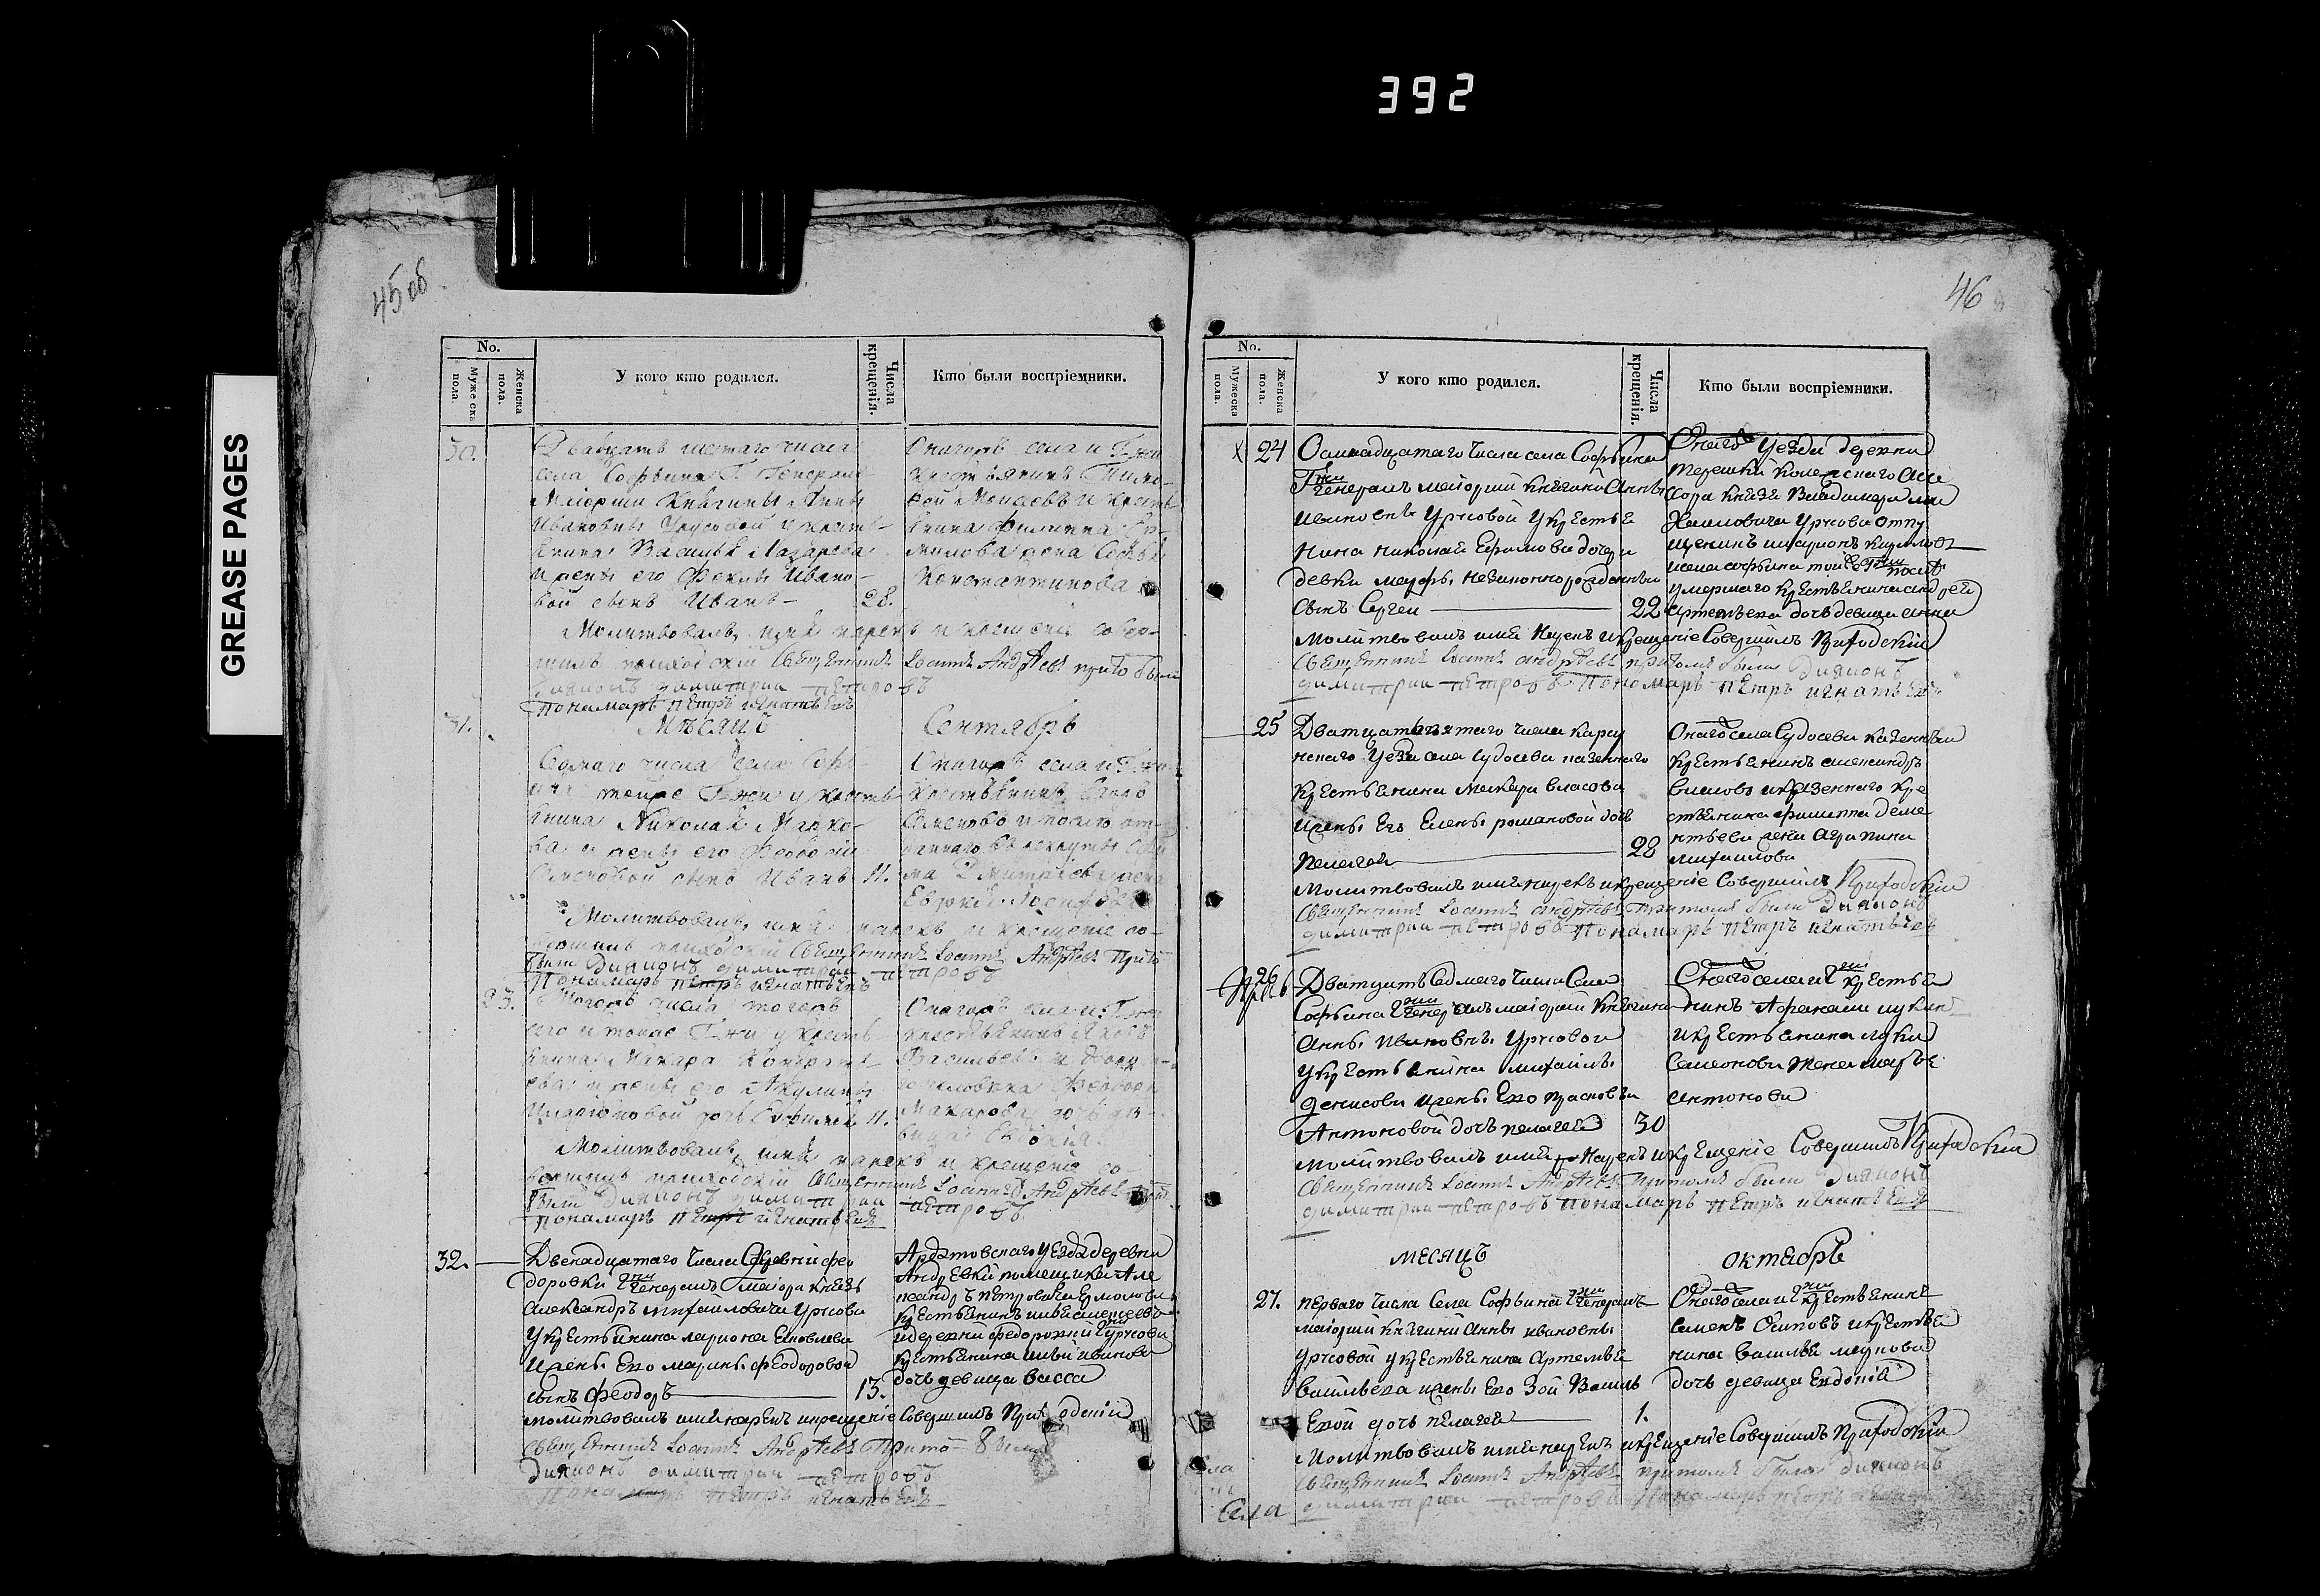 392
GREASE PAGES
45 об
No.
Мужеска пола.
Женска пола.
У кого кто родился.
Числа крещенія.
Кто были воспріемники.
30.
Двадцать шестаго числа
села Софьина Г. Генералъ
Маіорши Княгины Анны
Ивановны Урусовой у кресть
янина Василья Лазарева
и жены его Феклы Ивано-
вой сынъ Иванъ — 28.
Онагожъ села и Гжи
крестьянинъ
жена
Константинова
Молитвовалъ, имя нареκъ и крещеніе совер-
шилъ приходскій Священникъ Іоаннъ Андрѣевъ при то были
Диаконъ димитрии петровъ
пономарь петръ игнатьевъ
31.
Мѣсяцъ Сентябрь
Седмаго числа села Софь-
ина тойже Гжи у кресть
янина Николая Марко-
ва и жены его Феодосіи
Семеновой сынъ Иванъ 11.
Онагожъ села и Гжи
крестьянинъ
Семеновъ и
Дмитріева жена
Молитвовалъ, имя нарекъ и крещеніе со-
вершилъ приходскій Священникъ Іоаннъ Андрѣевъ при то
были Диаконъ димитрии петровъ
Пономарь петръ игнатьевъ
23.
числа тогожъ
села и тойже Гжи у кресть-
янина Макара
ва и жены его Акулины
дочь Евфимія 11.
Онагожъ села и Гжи
крестьянинъ
Васильевъ и
человека Феодора
Макарова дочь дѣ-
вица Евдокія
Молитвовалъ, имя нарекъ и крещеніе со-
вершилъ приходскій Священникъ Іоаннъ Андрѣевъ при то
были Диаконъ димитрии петровъ
пономарь петръ игнатьевъ
32.
Двенадцатаго числа Деревни фео
доровки Гжи Генералъ маіора князь
Александръ михаиловича Урусова
у крестьянина лариона Яковлева
и жены его марины феодоровой
сынъ Феодоръ — 13.
Ардатовскаго уезда деревни
Андреевки помещика Але
ксандръ петровича Ермолова
крестьянинъ
и деревни федоровки Г Урусова
крестьянина ивановa
дочь девица васса
молитвовалъ имя нарекъ и крещеніе Совершилъ Приходскіи
Священникъ Іоаннъ Андрѣевъ При то были
Диаконъ димитрии петровъ
Пономарь петръ игнатьевъ
46
No.
Мужеска пола.
Женска пола.
У кого кто родился.
Числа крещенія.
Кто были воспріемники.
X 24
Осмнадцатаго числа села Софьина
Гжи Генералъ маіорши княгини Анны
Ивановны Урусовой у крестья
нина николая Ефимова дочери
девки марфы незаконнорожденныи
сынъ Сергеи — 22
Онаго Уезда деревни
терешки колежскаго Асе
сора князя Владимера ми
хаиловича Урусова отпу
щенникъ
села софьина той Гжи после
умершаго крестьянина андрея
артемьева дочь девица анна
молитвовалъ имя нарекъ и крещеніе Совершилъ Приходскіи
Священникъ Іоаннъ андрѣевъ притомъ были Диаконъ
димитрии петровъ Пономарь петръ игнатьевъ
25
Дватцать пятаго числа карсу
нскаго Уезда села Судосева казеннаго
крестьянина макара власова
и жены Его Елены романовой дочь
пелагея — 28
Онаго села Судосева казенныи
крестьянинъ александръ
власовъ и казеннаго кре
стьянина филиппа деме
нтьева жена агрипина
михаилова
Молитвовалъ имя нарекъ и крещеніе Совершилъ Приходскіи
Священникъ Іоаннъ андрѣевъ притомъ были Диаконъ
димитрии петровъ Пономарь петръ игнатьевъ
26
Дватцать Седмаго числа Села
Софьина Гжи Генералъ маіорши княгини
Анны Ивановны Урусовой
у крестьянина михаилы
денисова и жены Его прасковьи
Антоновой дочь пелагея 30
Онаго села и Гжи крестья
нинъ Афанасіи лукинъ
и крестьянина луки
Семенова жена марья
антонова
молитвовалъ имя нарекъ и крещеніе Совершилъ Приходскіи
Священникъ Іоаннъ Андрѣевъ притомъ были Диаконъ
димитрии петровъ пономарь петръ игнатьевъ
месяцъ октябрь
27.
перваго числа Села Софьина Гжи Генералъ
маіорши княгини анны ивановны
Урусовой у крестьянина артемья
васильева и жены Его Зои Василь
Евой дочь пелагея — 1.
Онаго села и Гжи крестьянинъ
семенъ Осиповъ и крестья
нина василья маркова
дочь девица Евдокія
Молитвовалъ имя нарекъ и крещеніе Совершилъ Приходскіи
Священникъ Іоаннъ Андрѣевъ притомъ были диаконъ
димитрии петровъ Пономарь петръ
Села